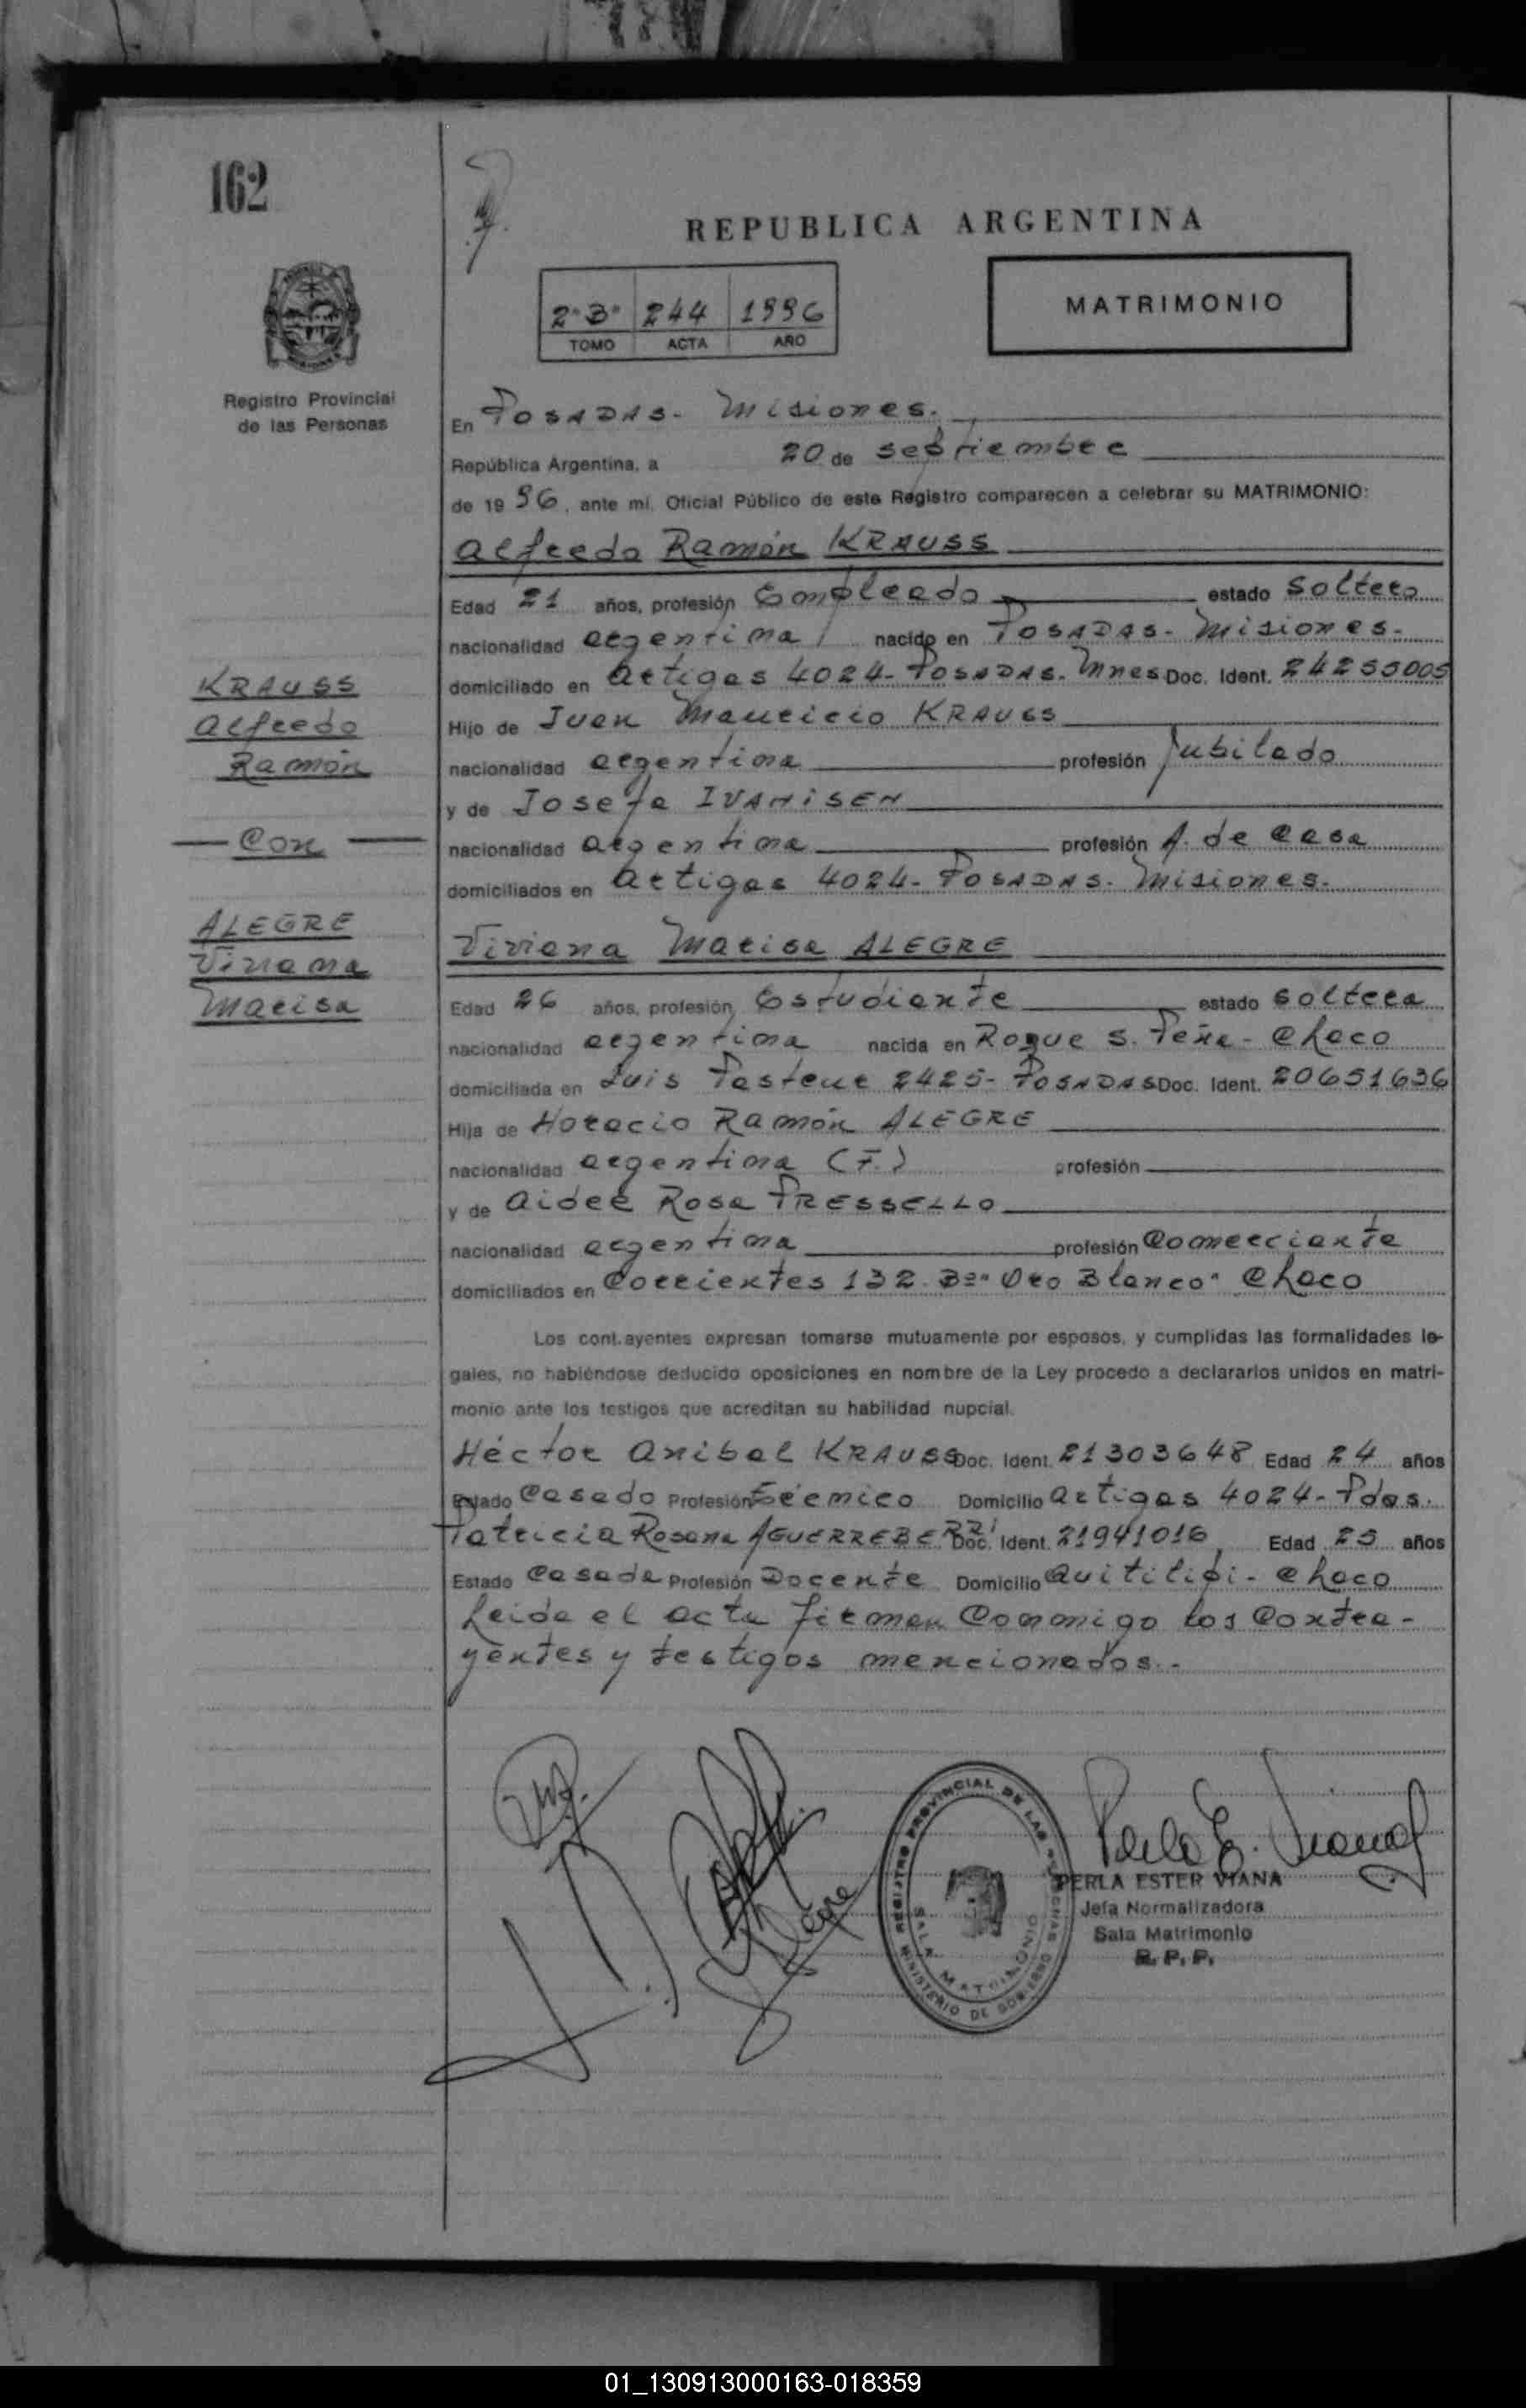 162
REPUBLICA ARGENTINA
2º Bº 244 1996
TOMO ACTA AÑO
MATRIMONIO
Registro Provincial
de las Personas
En POSADAS - Misiones.
República Argentina, a 20 de septiembre
de 1996, ante mi, Oficial Público de este Registro comparecen a celebrar su MATRIMONIO:
Alfredo Ramón KRAUSS
Edad 21 años, profesión Empleado estado Soltero
nacionalidad argentina nacido en POSADAS - Misiones.
domiciliado en Artigas 4024 - POSADAS. Mnes Doc. Ident. 24255005
Hijo de Juan Mauricio KRAUSS
nacionalidad argentina profesión Jubilado
y de Josefa IVANISEN
nacionalidad argentina profesión A. de casa
domiciliados en Artigas 4024 - POSADAS. Misiones.
KRAUSS
Alfredo
Ramón
Con
ALEGRE
Viviana
Marisa
Viviana Marisa ALEGRE
Edad 26 años, profesión Estudiante estado soltera
nacionalidad argentina nacida en Roque S. Peña - Chaco
domiciliada en Luis Pasteur 2425 - POSADAS Doc. Ident. 20651636
Hija de Horacio Ramón ALEGRE
nacionalidad argentina (F.) profesión
y de Aideé Rosa PRESSELLO
nacionalidad argentina profesión Comerciante
domiciliados en Corrientes 132 Bº "Oro Blanco" Chaco
Los contrayentes expresan tomarse mutuamente por esposos, y cumplidas las formalidades le-
gales, no habiéndose deducido oposiciones en nombre de la Ley procedo a declararlos unidos en matri-
monio ante los testigos que acreditan su habilidad nupcial.
Héctor Anibal KRAUSS Doc. Ident. 21303648 Edad 24 años
Estado Casado Profesión Técnico Domicilio Artigas 4024 - Pdas.
Patricia Rosana AGUERREBERRI Doc. Ident. 21941016 Edad 25 años
Estado Casada Profesión Docente Domicilio Quitilipi - Chaco
Leida el acta firman conmigo los contra-
yentes y testigos mencionados. -
Alegre
REGISTRO PROVINCIAL DE LAS PERSONAS
SALA MATRIMONIO
MINISTERIO DE GOBIERNO
Perla E. Viana
PERLA ESTER VIANA
Jefa Normalizadora
Sala Matrimonio
R. P. P.
01_130913000163-018359